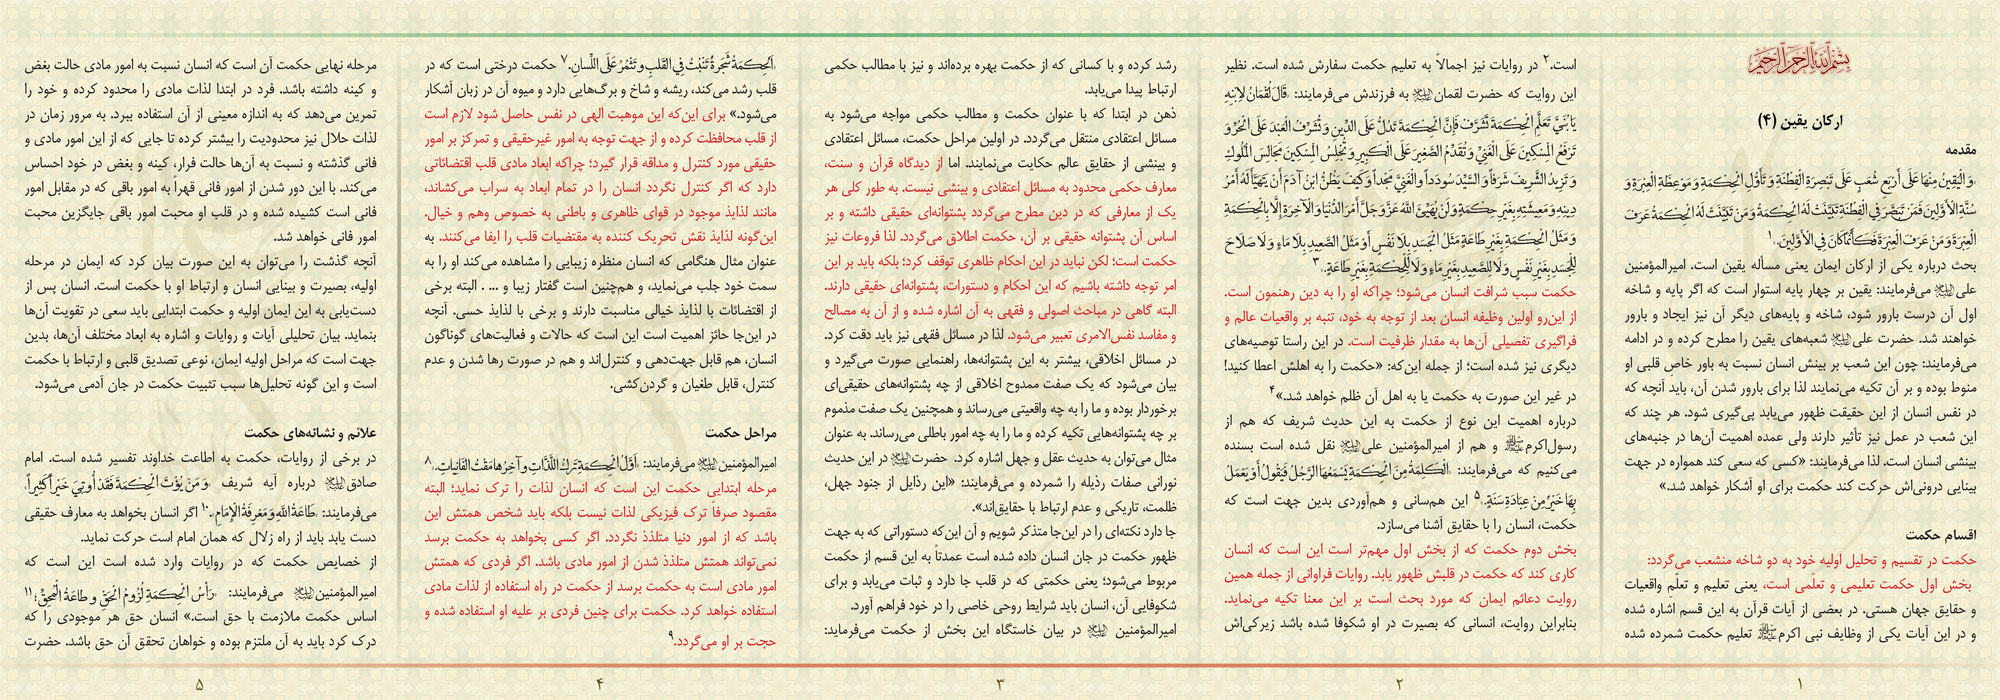 بسم الله الرحمن الرحیم
ارکان یقین (۴)
مقدمه
«وَالْيَقِينُ مِنْهَا عَلَى أَرْبَعِ شُعَبٍ عَلَى تَبْصِرَةِ الْفِطْنَةِ وَ تَأَوُّلِ الْحِكْمَةِ وَ مَوْعِظَةِ الْعِبْرَةِ وَ
سُنَّةِ الْأَوَّلِينَ فَمَنْ تَبَصَّرَ فِي الْفِطْنَةِ تَبَيَّنَتْ لَهُ الْحِكْمَةُ وَ مَنْ تَبَيَّنَتْ لَهُ الْحِكْمَةُ عَرَفَ
الْعِبْرَةَ وَ مَنْ عَرَفَ الْعِبْرَةَ فَكَأَنَّمَا كَانَ فِي الْأَوَّلِينَ».۱
بحث درباره یکی از ارکان ایمان یعنی مسأله یقین است. امیرالمؤمنین
علی علیه‌السلام می‌فرمایند: یقین بر چهار پایه استوار است که اگر پایه و شاخه
اول آن درست بارور شود، شاخه و پایه‌های دیگر آن نیز ایجاد و بارور
خواهند شد. حضرت علی علیه‌السلام شعبه‌های یقین را مطرح کرده و در ادامه
می‌فرمایند: چون این شعب بر بینش انسان نسبت به باور خاص قلبی او
منوط بوده و بر آن تکیه می‌نمایند لذا برای بارور شدن آن، باید آنچه که
در نفس انسان از این حقیقت ظهور می‌یابد پی‌گیری شود. هر چند که
این شعب در عمل نیز تأثیر دارند ولی عمده اهمیت آن‌ها در جنبه‌های
بینشی انسان است. لذا می‌فرمایند: «کسی که سعی کند همواره در جهت
بینایی درونی‌اش حرکت کند حکمت برای او آشکار خواهد شد.»
اقسام حکمت
حکمت در تقسیم و تحلیل اولیه خود به دو شاخه منشعب می‌گردد:
بخش اول حکمت تعلیمی و تعلّمی است، یعنی تعلیم و تعلّم واقعیات
و حقایق جهان هستی. در بعضی از آیات قرآن به این قسم اشاره شده
و در این آیات یکی از وظایف نبی اکرم صلی‌الله‌علیه‌وآله تعلیم حکمت شمرده شده
۱
است.۲ در روایات نیز اجمالاً به تعلیم حکمت سفارش شده است. نظیر
این روایت که حضرت لقمان علیه‌السلام به فرزندش می‌فرمایند: «قَالَ لُقْمَانُ لِابْنِهِ
يَا بُنَيَّ تَعَلَّمِ الْحِكْمَةَ تُشَرَّفْ فَإِنَّ الْحِكْمَةَ تَدُلُّ عَلَى الدِّينِ وَ تُشَرِّفُ الْعَبْدَ عَلَى الْحُرِّ وَ
تَرْفَعُ الْمِسْكِينَ عَلَى الْغَنِيِّ وَ تُقَدِّمُ الصَّغِيرَ عَلَى الْكَبِيرِ وَ تُجْلِسُ الْمِسْكِينَ مَجَالِسَ الْمُلُوكِ
وَ تَزِيدُ الشَّرِيفَ شَرَفاً وَ السَّيِّدَ سُودَداً وَ الْغَنِيَّ مَجْداً وَ كَيْفَ يَظُنُّ ابْنُ آدَمَ أَنْ يَتَهَيَّأَ لَهُ أَمْرُ
دِينِهِ وَ مَعِيشَتِهِ بِغَيْرِ حِكْمَةٍ وَ لَنْ يُهَيِّئَ اللَّهُ عَزَّ وَ جَلَّ أَمْرَ الدُّنْيَا وَ الْآخِرَةِ إِلَّا بِالْحِكْمَةِ
وَ مَثَلُ الْحِكْمَةِ بِغَيْرِ طَاعَةٍ مَثَلُ الْجَسَدِ بِلَا نَفْسٍ أَوْ مَثَلُ الصَّعِيدِ بِلَا مَاءٍ وَ لَا صَلَاحَ
لِلْجَسَدِ بِغَيْرِ نَفْسٍ وَ لَا لِلصَّعِيدِ بِغَيْرِ مَاءٍ وَ لَا لِلْحِكْمَةِ بِغَيْرِ طَاعَةٍ».۳
حکمت سبب شرافت انسان می‌شود؛ چراکه او را به دین رهنمون است.
از این‌رو اولین وظیفه انسان بعد از توجه به خود، تنبه بر واقعیات عالم و
فراگیری تفصیلی آن‌ها به مقدار ظرفیت است. در این راستا توصیه‌های
دیگری نیز شده است؛ از جمله این‌که: «حکمت را به اهلش اعطا کنید!
در غیر این صورت به حکمت یا به اهل آن ظلم خواهد شد.»۴
درباره اهمیت این نوع از حکمت به این حدیث شریف که هم از
رسول‌اکرم صلی‌الله‌علیه‌وآله و هم از امیرالمؤمنین علی علیه‌السلام نقل شده است بسنده
می‌کنیم که می‌فرمایند: «الْكَلِمَةُ مِنَ الْحِكْمَةِ يَسْمَعُهَا الرَّجُلُ فَيَقُولُ أَوْ يَعْمَلُ
بِهَا خَيْرٌ مِنْ عِبَادَةِ سَنَةٍ».۵ این هم‌سانی و هم‌آوردی بدین جهت است که
حکمت، انسان را با حقایق آشنا می‌سازد.
بخش دوم حکمت که از بخش اول مهم‌تر است این است که انسان
کاری کند که حکمت در قلبش ظهور یابد. روایات فراوانی از جمله همین
روایت دعائم ایمان که مورد بحث است بر این معنا تکیه می‌نماید.
بنابراین روایت، انسانی که بصیرت در او شکوفا شده باشد زیرکی‌اش
۲
رشد کرده و با کسانی که از حکمت بهره برده‌اند و نیز با مطالب حکمی
ارتباط پیدا می‌یابد.
ذهن در ابتدا که با عنوان حکمت و مطالب حکمی مواجه می‌شود به
مسائل اعتقادی منتقل می‌گردد. در اولین مراحل حکمت، مسائل اعتقادی
و بینشی از حقایق عالم حکایت می‌نمایند. اما از دیدگاه قرآن و سنت،
معارف حکمی محدود به مسائل اعتقادی و بینشی نیست. به طور کلی هر
یک از معارفی که در دین مطرح می‌گردد پشتوانه‌ای حقیقی داشته و بر
اساس آن پشتوانه حقیقی بر آن، حکمت اطلاق می‌گردد. لذا فروعات نیز
حکمت است؛ لکن نباید در این احکام ظاهری توقف کرد؛ بلکه باید بر این
امر توجه داشته باشیم که این احکام و دستورات، پشتوانه‌ای حقیقی دارند.
البته گاهی در مباحث اصولی و فقهی به آن اشاره شده و از آن به مصالح
و مفاسد نفس‌الامری تعبیر می‌شود. لذا در مسائل فقهی نیز باید دقت کرد.
در مسائل اخلاقی، بیشتر به این پشتوانه‌ها، راهنمایی صورت می‌گیرد و
بیان می‌شود که یک صفت ممدوح اخلاقی از چه پشتوانه‌های حقیقی‌ای
برخوردار بوده و ما را به چه واقعیتی می‌رساند و همچنین یک صفت مذموم
بر چه پشتوانه‌هایی تکیه کرده و ما را به چه امور باطلی می‌رساند. به عنوان
مثال می‌توان به حدیث عقل و جهل اشاره کرد. حضرت علیه‌السلام در این حدیث
نورانی صفات رذیله را شمرده و می‌فرمایند: «این رذایل از جنود جهل،
ظلمت، تاریکی و عدم ارتباط با حقایق‌اند».
جا دارد نکته‌ای را در این‌جا متذکر شویم و آن این‌که دستوراتی که به جهت
ظهور حکمت در جان انسان داده شده است عمدتاً به این قسم از حکمت
مربوط می‌شود؛ یعنی حکمتی که در قلب جا دارد و ثبات می‌یابد و برای
شکوفایی آن، انسان باید شرایط روحی خاصی را در خود فراهم آورد.
امیرالمؤمنین علیه‌السلام در بیان خاستگاه این بخش از حکمت می‌فرماید:
۳
«الْحِكْمَةُ شَجَرَةٌ تَنْبُتُ فِي الْقَلْبِ وَ تُثْمِرُ عَلَى اللِّسَانِ».۷ حکمت درختی است که در
قلب رشد می‌کند، ریشه و شاخ و برگ‌هایی دارد و میوه آن در زبان آشکار
می‌شود.» برای این‌که این موهبت الهی در نفس حاصل شود لازم است
از قلب محافظت کرده و از جهت توجه به امور غیرحقیقی و تمرکز بر امور
حقیقی مورد کنترل و مداقه قرار گیرد؛ چراکه ابعاد مادی قلب اقتضائاتی
دارد که اگر کنترل نگردد انسان را در تمام ابعاد به سراب می‌کشاند،
مانند لذایذ موجود در قوای ظاهری و باطنی به خصوص وهم و خیال.
این‌گونه لذایذ نقش تحریک کننده به مقتضیات قلب را ایفا می‌کنند. به
عنوان مثال هنگامی که انسان منظره زیبایی را مشاهده می‌کند او را به
سمت خود جلب می‌نماید، و هم‌چنین است گفتار زیبا و ... . البته برخی
از اقتضائات با لذایذ خیالی مناسبت دارند و برخی با لذایذ حسی. آنچه
در این‌جا حائز اهمیت است این است که حالات و فعالیت‌های گوناگون
انسان، هم قابل جهت‌دهی و کنترل‌اند و هم در صورت رها شدن و عدم
کنترل، قابل طغیان و گردن‌کشی.
مراحل حکمت
امیرالمؤمنین علیه‌السلام می‌فرمایند: «أَوَّلُ الْحِكْمَةِ تَرْكُ اللَّذَّاتِ وَ آخِرُهَا مَقْتُ الْفَانِيَاتِ».۸
مرحله ابتدایی حکمت این است که انسان لذات را ترک نماید؛ البته
مقصود صرفا ترک فیزیکی لذات نیست بلکه باید شخص همتش این
باشد که از امور دنیا متلذذ نگردد. اگر کسی بخواهد به حکمت برسد
نمی‌تواند همتش متلذذ شدن از امور مادی باشد. اگر فردی که همتش
امور مادی است به حکمت برسد از حکمت در راه استفاده از لذات مادی
استفاده خواهد کرد. حکمت برای چنین فردی بر علیه او استفاده شده و
حجت بر او می‌گردد.۹
۴
مرحله نهایی حکمت آن است که انسان نسبت به امور مادی حالت بغض
و کینه داشته باشد. فرد در ابتدا لذات مادی را محدود کرده و خود را
تمرین می‌دهد که به اندازه معینی از آن استفاده ببرد. به مرور زمان در
لذات حلال نیز محدودیت را بیشتر کرده تا جایی که از این امور مادی و
فانی گذشته و نسبت به آن‌ها حالت فرار، کینه و بغض در خود احساس
می‌کند. با این دور شدن از امور فانی قهرا به امور باقی که در مقابل امور
فانی است کشیده شده و در قلب او محبت امور باقی جایگزین محبت
امور فانی خواهد شد.
آنچه گذشت را می‌توان به این صورت بیان کرد که ایمان در مرحله
اولیه، بصیرت و بینایی انسان و ارتباط او با حکمت است. انسان پس از
دست‌یابی به این ایمان اولیه و حکمت ابتدایی باید سعی در تقویت آن‌ها
بنماید. بیان تحلیلی آیات و روایات و اشاره به ابعاد مختلف آن‌ها، بدین
جهت است که مراحل اولیه ایمان، نوعی تصدیق قلبی و ارتباط با حکمت
است و این گونه تحلیل‌ها سبب تثبیت حکمت در جان آدمی می‌شود.
علائم و نشانه‌های حکمت
در برخی از روایات، حکمت به اطاعت خداوند تفسیر شده است. امام
صادق علیه‌السلام درباره آیه شریف «وَ مَنْ يُؤْتَ الْحِكْمَةَ فَقَدْ أُوتِيَ خَيْراً كَثِيراً»
می‌فرمایند: «طَاعَةُ اللَّهِ وَ مَعْرِفَةُ الْإِمَامِ».۱۰ اگر انسان بخواهد به معارف حقیقی
دست یابد باید از راه زلال که همان امام است حرکت نماید.
از خصایص حکمت که در روایات وارد شده است این است که
امیرالمؤمنین علیه‌السلام می‌فرمایند: «رَأْسُ الْحِكْمَةِ لُزُومُ الْحَقِّ وَ طَاعَةُ الْمُحِقِّ؛۱۱
اساس حکمت ملازمت با حق است.» انسان حق هر موجودی را که
درک کرد باید به آن ملتزم بوده و خواهان تحقق آن حق باشد. حضرت
۵